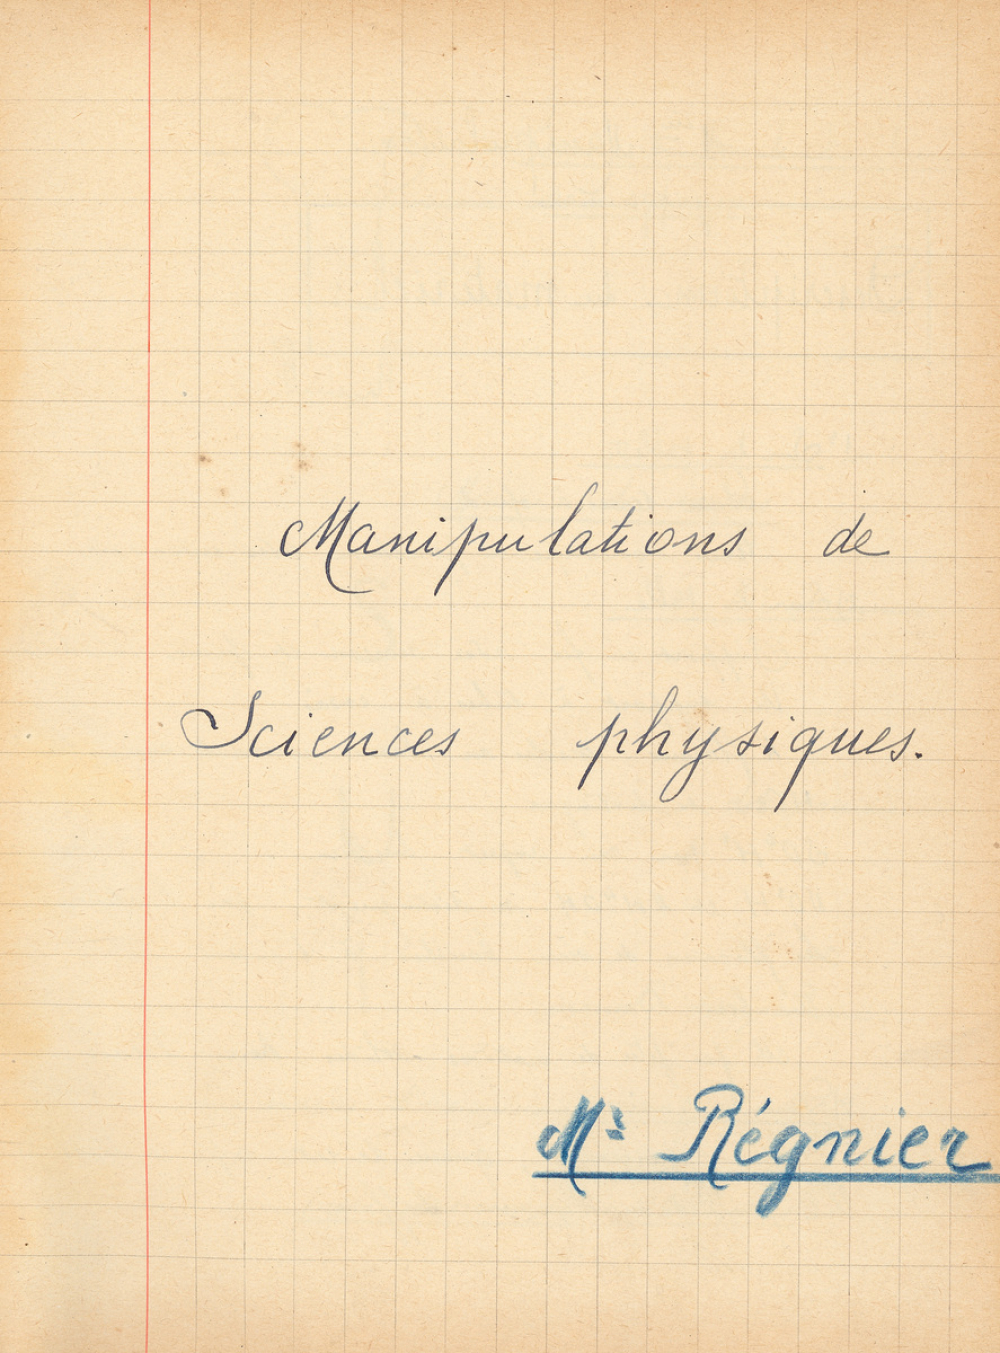 Manipulations de
Sciences physiques.
Mr Régnier